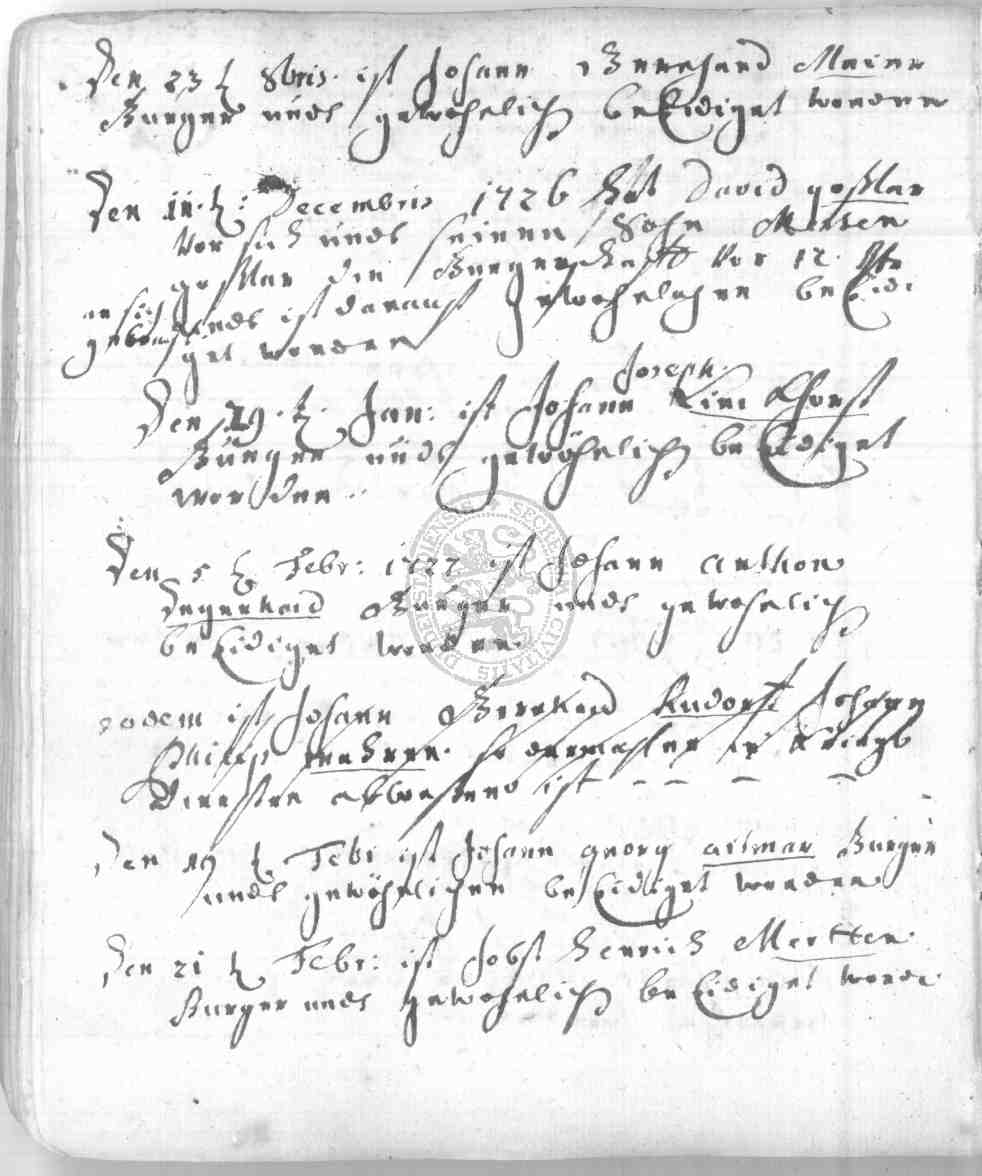 Den 23 t 8bris. ist Johann Bernhard Meier
Burger undt gewöhnlich beEidiget worden
Den 11. t: Decembris 1726 hat David goßlar
vor sich undt seinen Sohn Merten
goßlar die Burgerschafft vor 12
an sich
undt ist darauf gewohnlichen beEidi
get worden
Joseph
Den 29. t. Jan: ist Johann
Burger undt gewöhnlich beEidiget
worden
Den 5 t Febr: 1727 ist Johann Anthon
Degenhard Burger undt gewohnlich
beEidiget worden
eodem ist Johann Bernhard Johann
Philip so dermahlen in Kriegs
Diensten abwesend ist
Den 19 t Febr ist Johann georg Burger
undt gewöhnlichen beEidiget worden
Den 21 t Febr: ist Jobst Henrich Mertten
Burger undt gewohnlich beEidiget worde
SECRETUM CIVITATIS